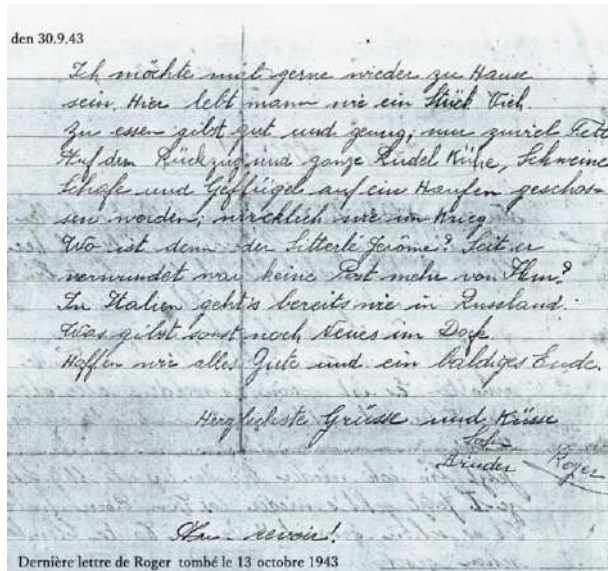 den 30.9.43
Ich möchte mal gerne wieder zu Hause
sein. Hier lebt mann wie ein Stück Vieh.
Zu essen gibst gut und genug, nur zuviel Fett
Auf dem Rückzug und ganze Rudel Kühe, Schweine
Schafe und Geflügel auf ein Haufen geschos=
sen worden; wircklich wie im Krieg
Wo ist denn der Sitterlé Jerôme? Seit er
verwundet war keine Post mehr von Ihm?
In Italien geht's bereits wie in Russland.
Was gibst sonst noch Neues im Dorf.
Hoffen wir alles Gute und ein baldiges Ende.
Herzlichste Grüsse und Küsse
Sohn
Bruder Roger
Au revoir!
Dernière lettre de Roger tombé le 13 octobre 1943